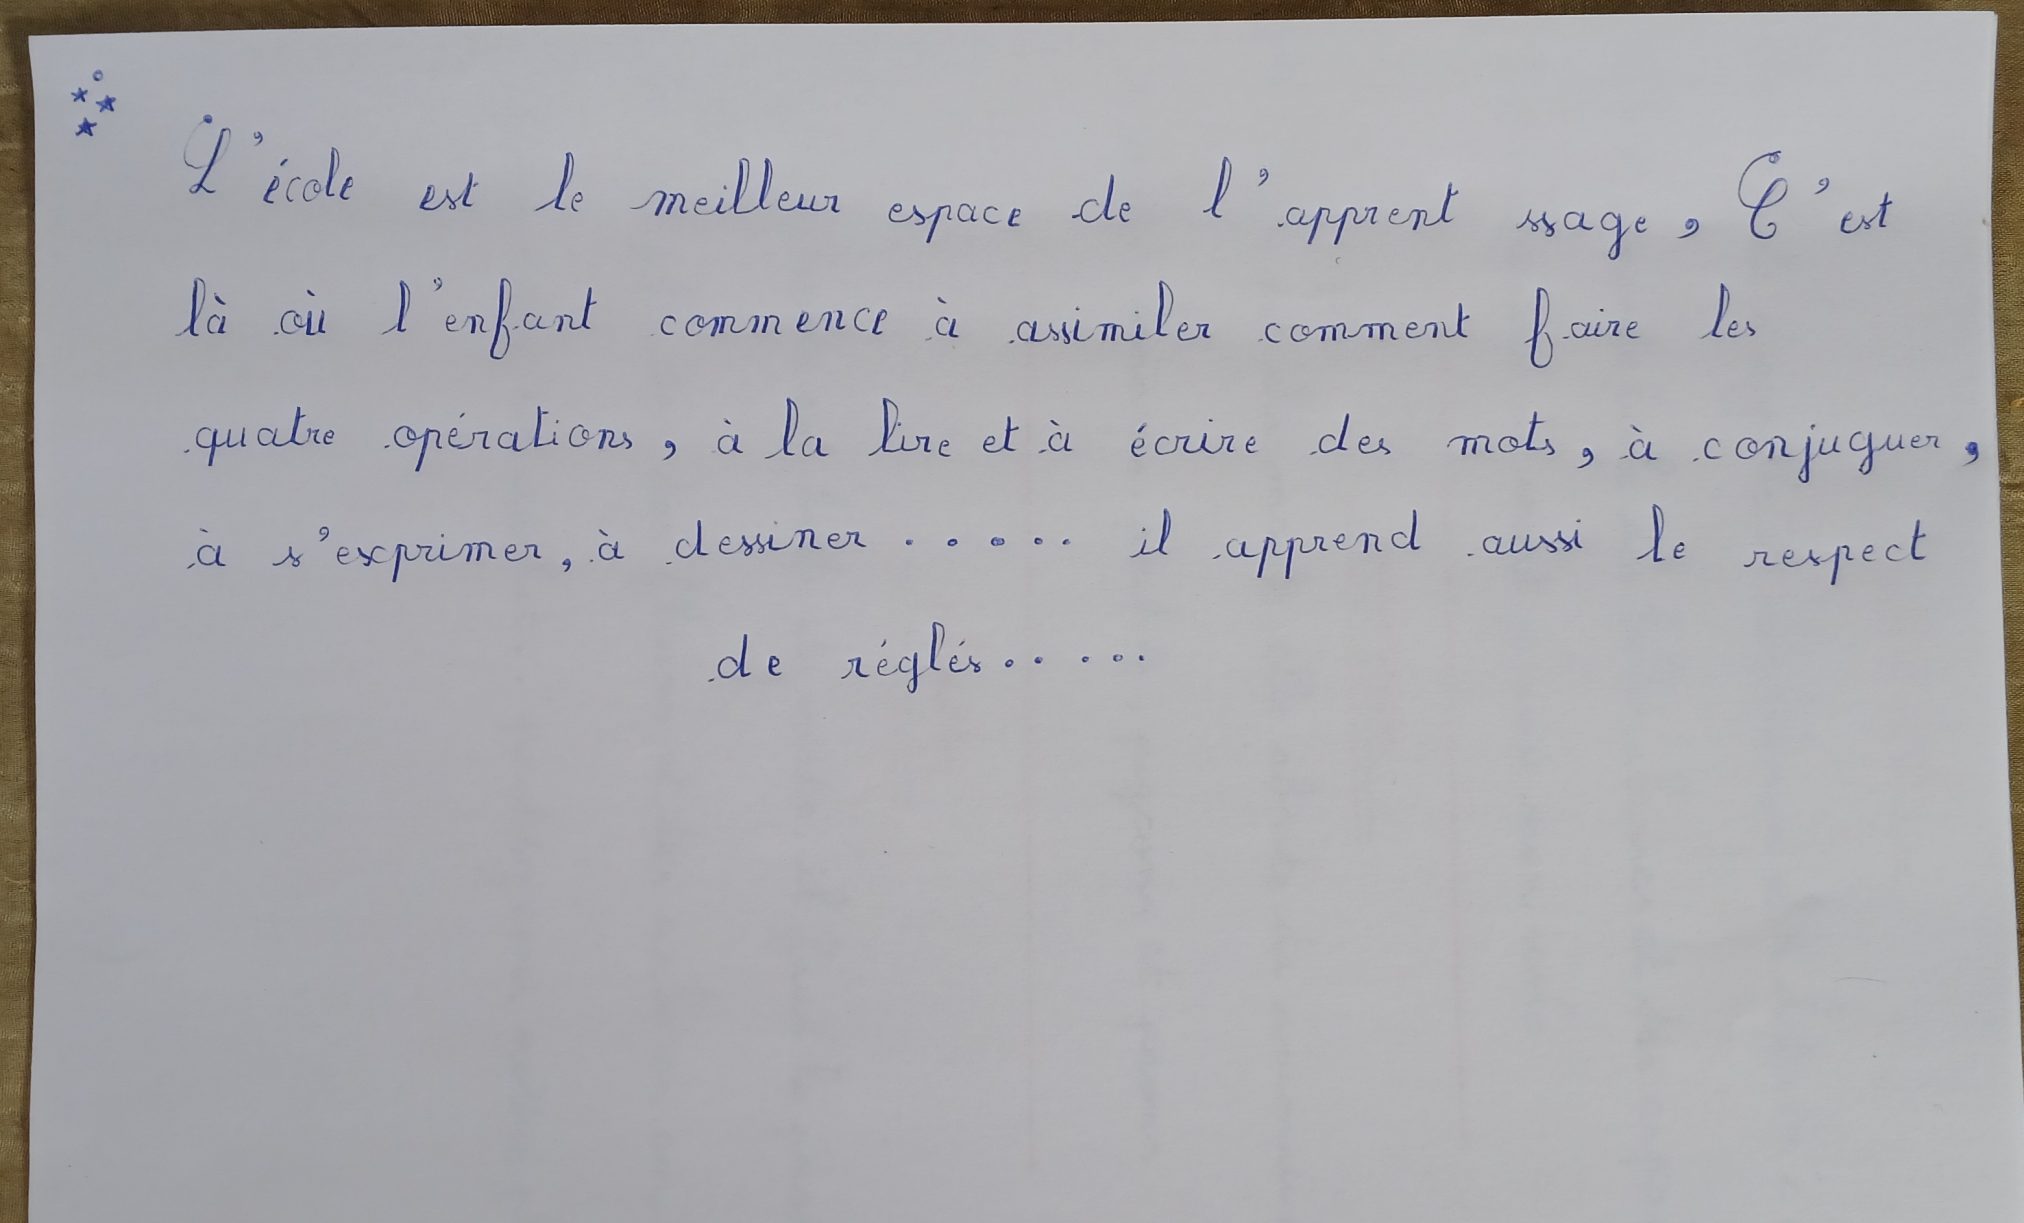 L'école est le meilleur espace de l'apprent ssage, C'est
là où l'enfant commence à assimiler comment faire les
quatre opérations, à la lire et à écrire des mots, à conjuguer,
à s'exprimer, à dessiner ..... il apprend aussi le respect
de réglés.....